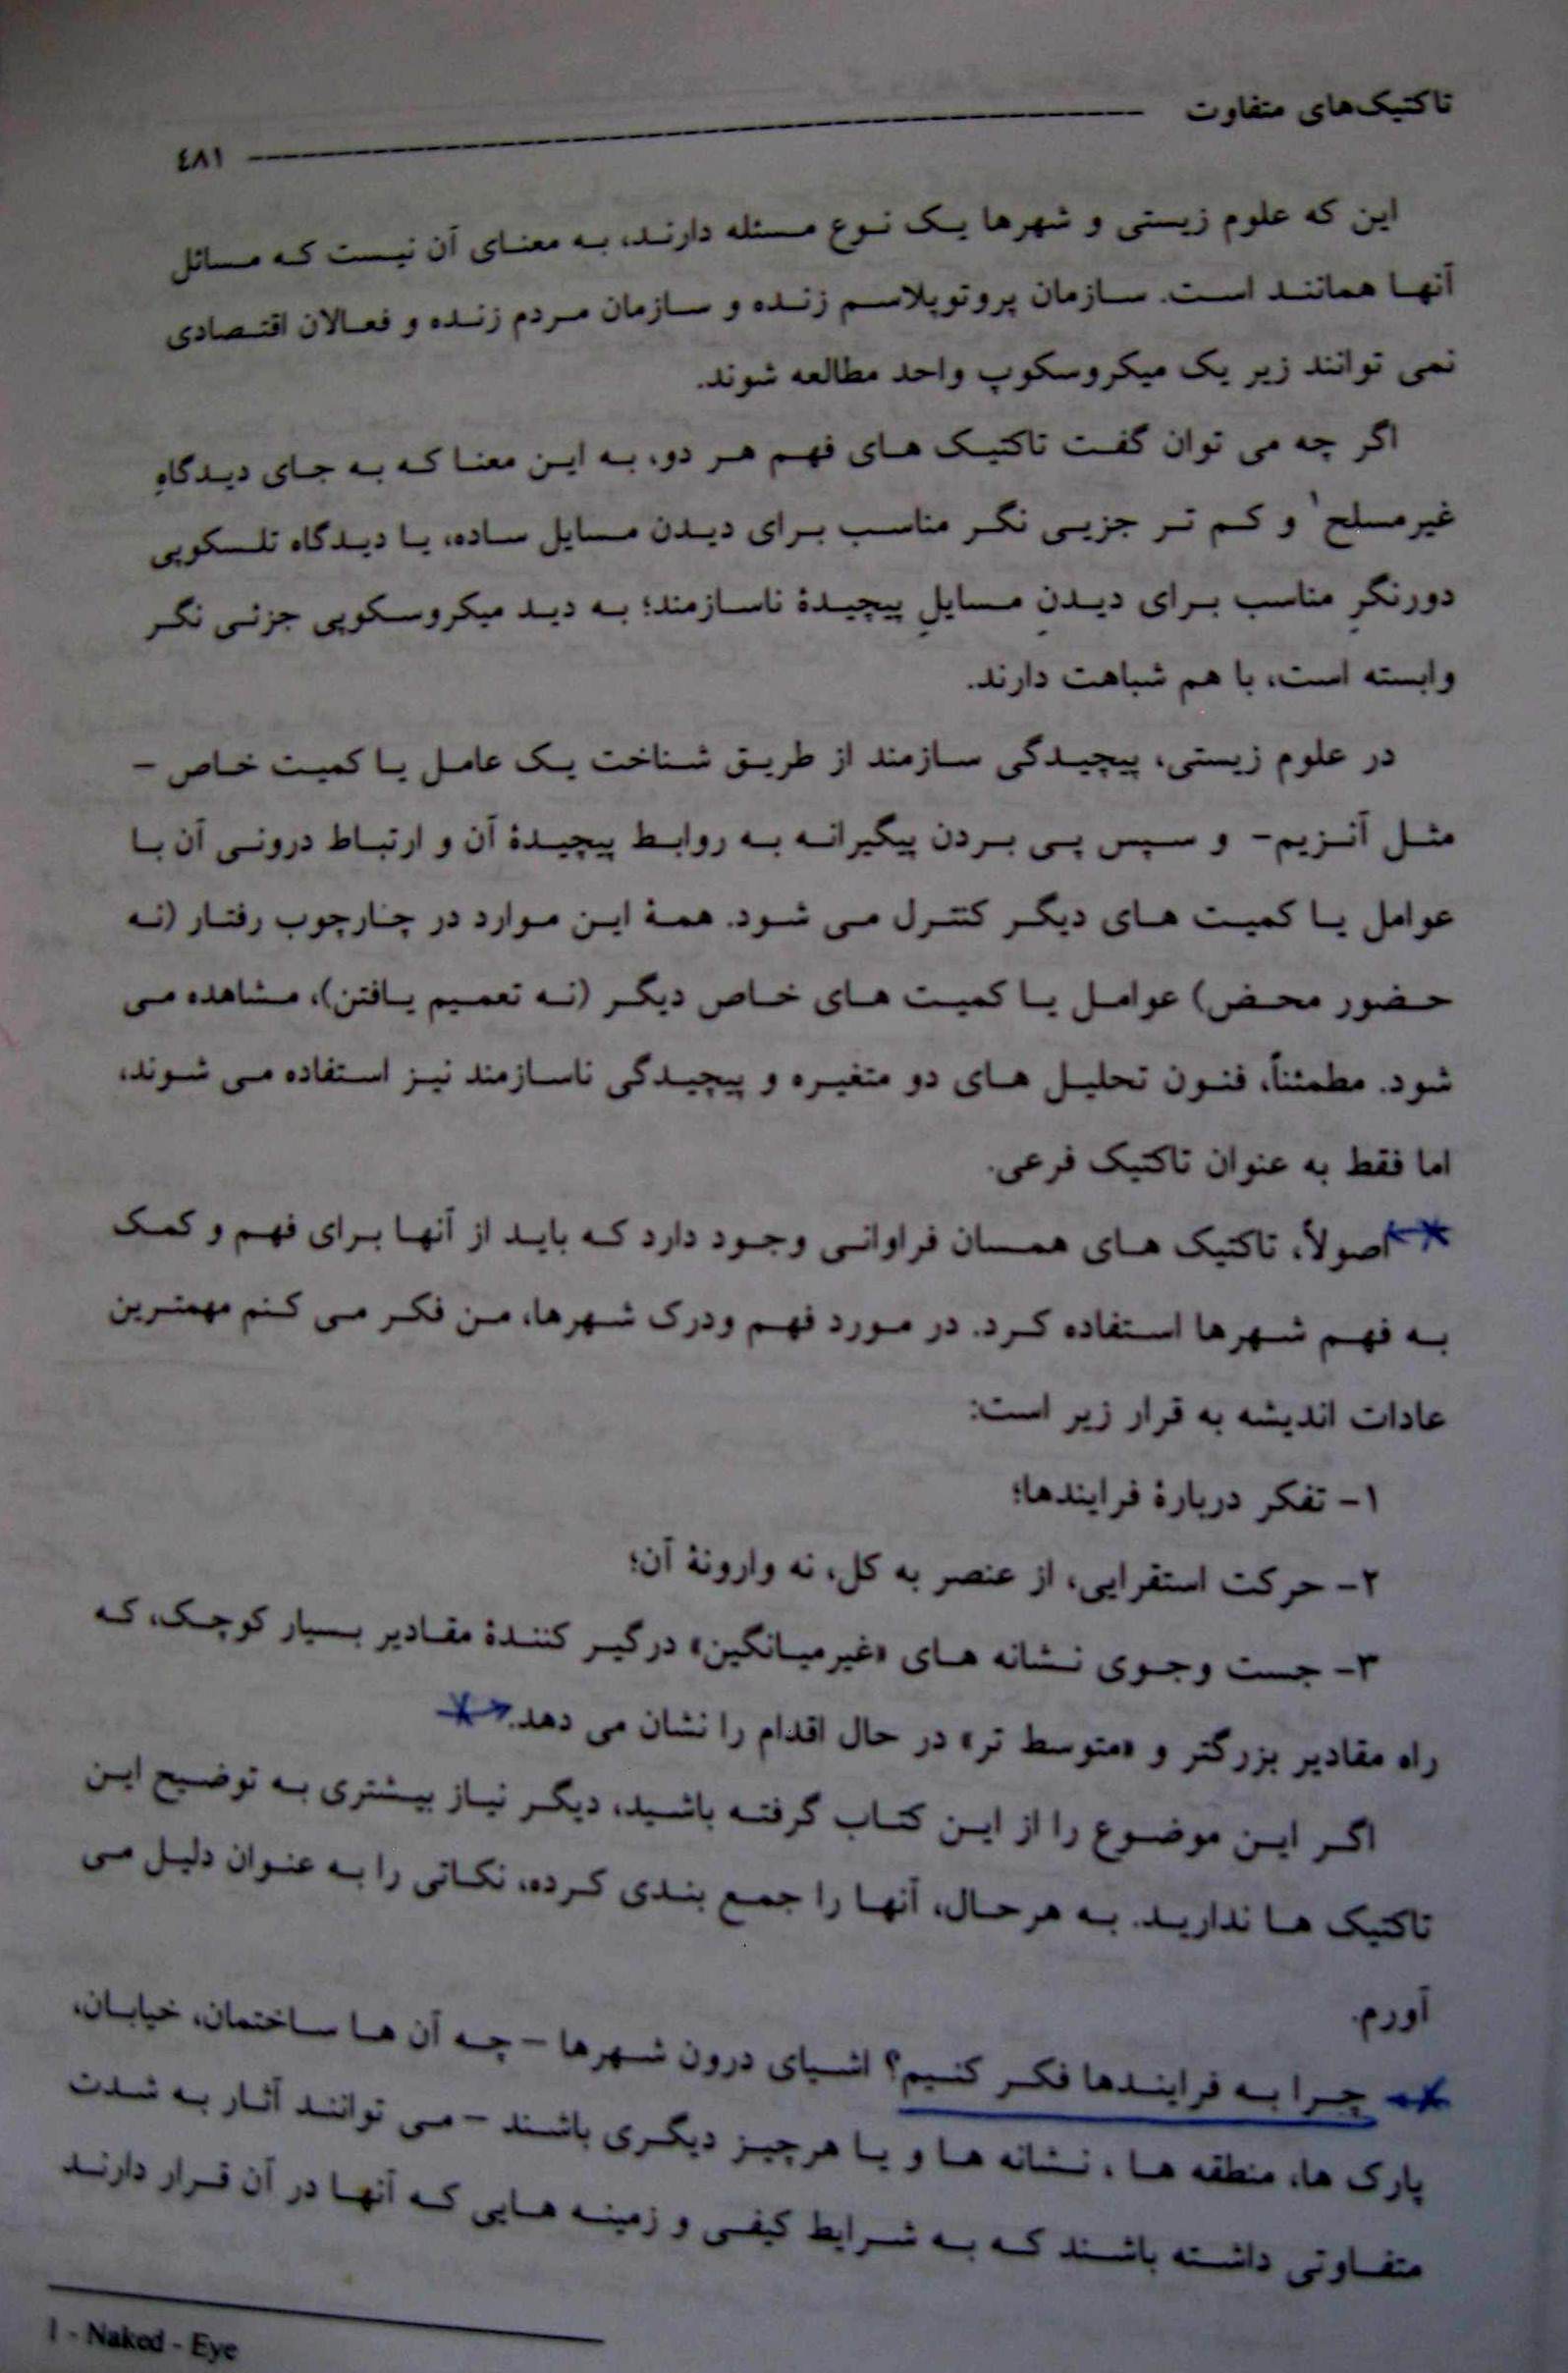 تاکتیک‌های متفاوت ٤٨١
این که علوم زیستی و شهرها یک نوع مسئله دارند، به معنای آن نیست که مسائل
آنها همانند است. سازمان پروتوپلاسم زنده و سازمان مردم زنده و فعالان اقتصادی
نمی توانند زیر یک میکروسکوپ واحد مطالعه شوند.
اگر چه می توان گفت تاکتیک های فهم هر دو، به این معنا که به جای دیدگاهِ
غیرمسلح۱ و کم تر جزیی نگر مناسب برای دیدن مسایل ساده، یا دیدگاه تلسکوپی
دورنگرِ مناسب برای دیدنِ مسایلِ پیچیدۀ ناسازمند؛ به دید میکروسکوپی جزئی نگر
وابسته است، با هم شباهت دارند.
در علوم زیستی، پیچیدگی سازمند از طریق شناخت یک عامل یا کمیت خاص –
مثل آنزیم– و سپس پی بردن پیگیرانه به روابط پیچیدۀ آن و ارتباط درونی آن با
عوامل یا کمیت های دیگر کنترل می شود. همۀ این موارد در چارچوب رفتار (نه
حضور محض) عوامل یا کمیت های خاص دیگر (نه تعمیم یافتن)، مشاهده می
شود. مطمئناً، فنون تحلیل های دو متغیره و پیچیدگی ناسازمند نیز استفاده می شوند،
اما فقط به عنوان تاکتیک فرعی.
اصولاً، تاکتیک های همسان فراوانی وجود دارد که باید از آنها برای فهم و کمک
به فهم شهرها استفاده کرد. در مورد فهم ودرک شهرها، من فکر می کنم مهمترین
عادات اندیشه به قرار زیر است:
۱– تفکر دربارۀ فرایندها؛
۲– حرکت استقرایی، از عنصر به کل، نه وارونۀ آن؛
۳– جست وجوی نشانه های «غیرمیانگین» درگیر کنندۀ مقادیر بسیار کوچک، که
راه مقادیر بزرگتر و «متوسط تر» در حال اقدام را نشان می دهد.
اگر این موضوع را از این کتاب گرفته باشید، دیگر نیاز بیشتری به توضیح این
تاکتیک ها ندارید. به هرحال، آنها را جمع بندی کرده، نکاتی را به عنوان دلیل می
آورم.
چرا به فرایندها فکر کنیم؟ اشیای درون شهرها – چه آن ها ساختمان، خیابان،
پارک ها، منطقه ها ، نشانه ها و یا هرچیز دیگری باشند – می توانند آثار به شدت
متفاوتی داشته باشند که به شرایط کیفی و زمینه هایی که آنها در آن قرار دارند
1 - Naked - Eye